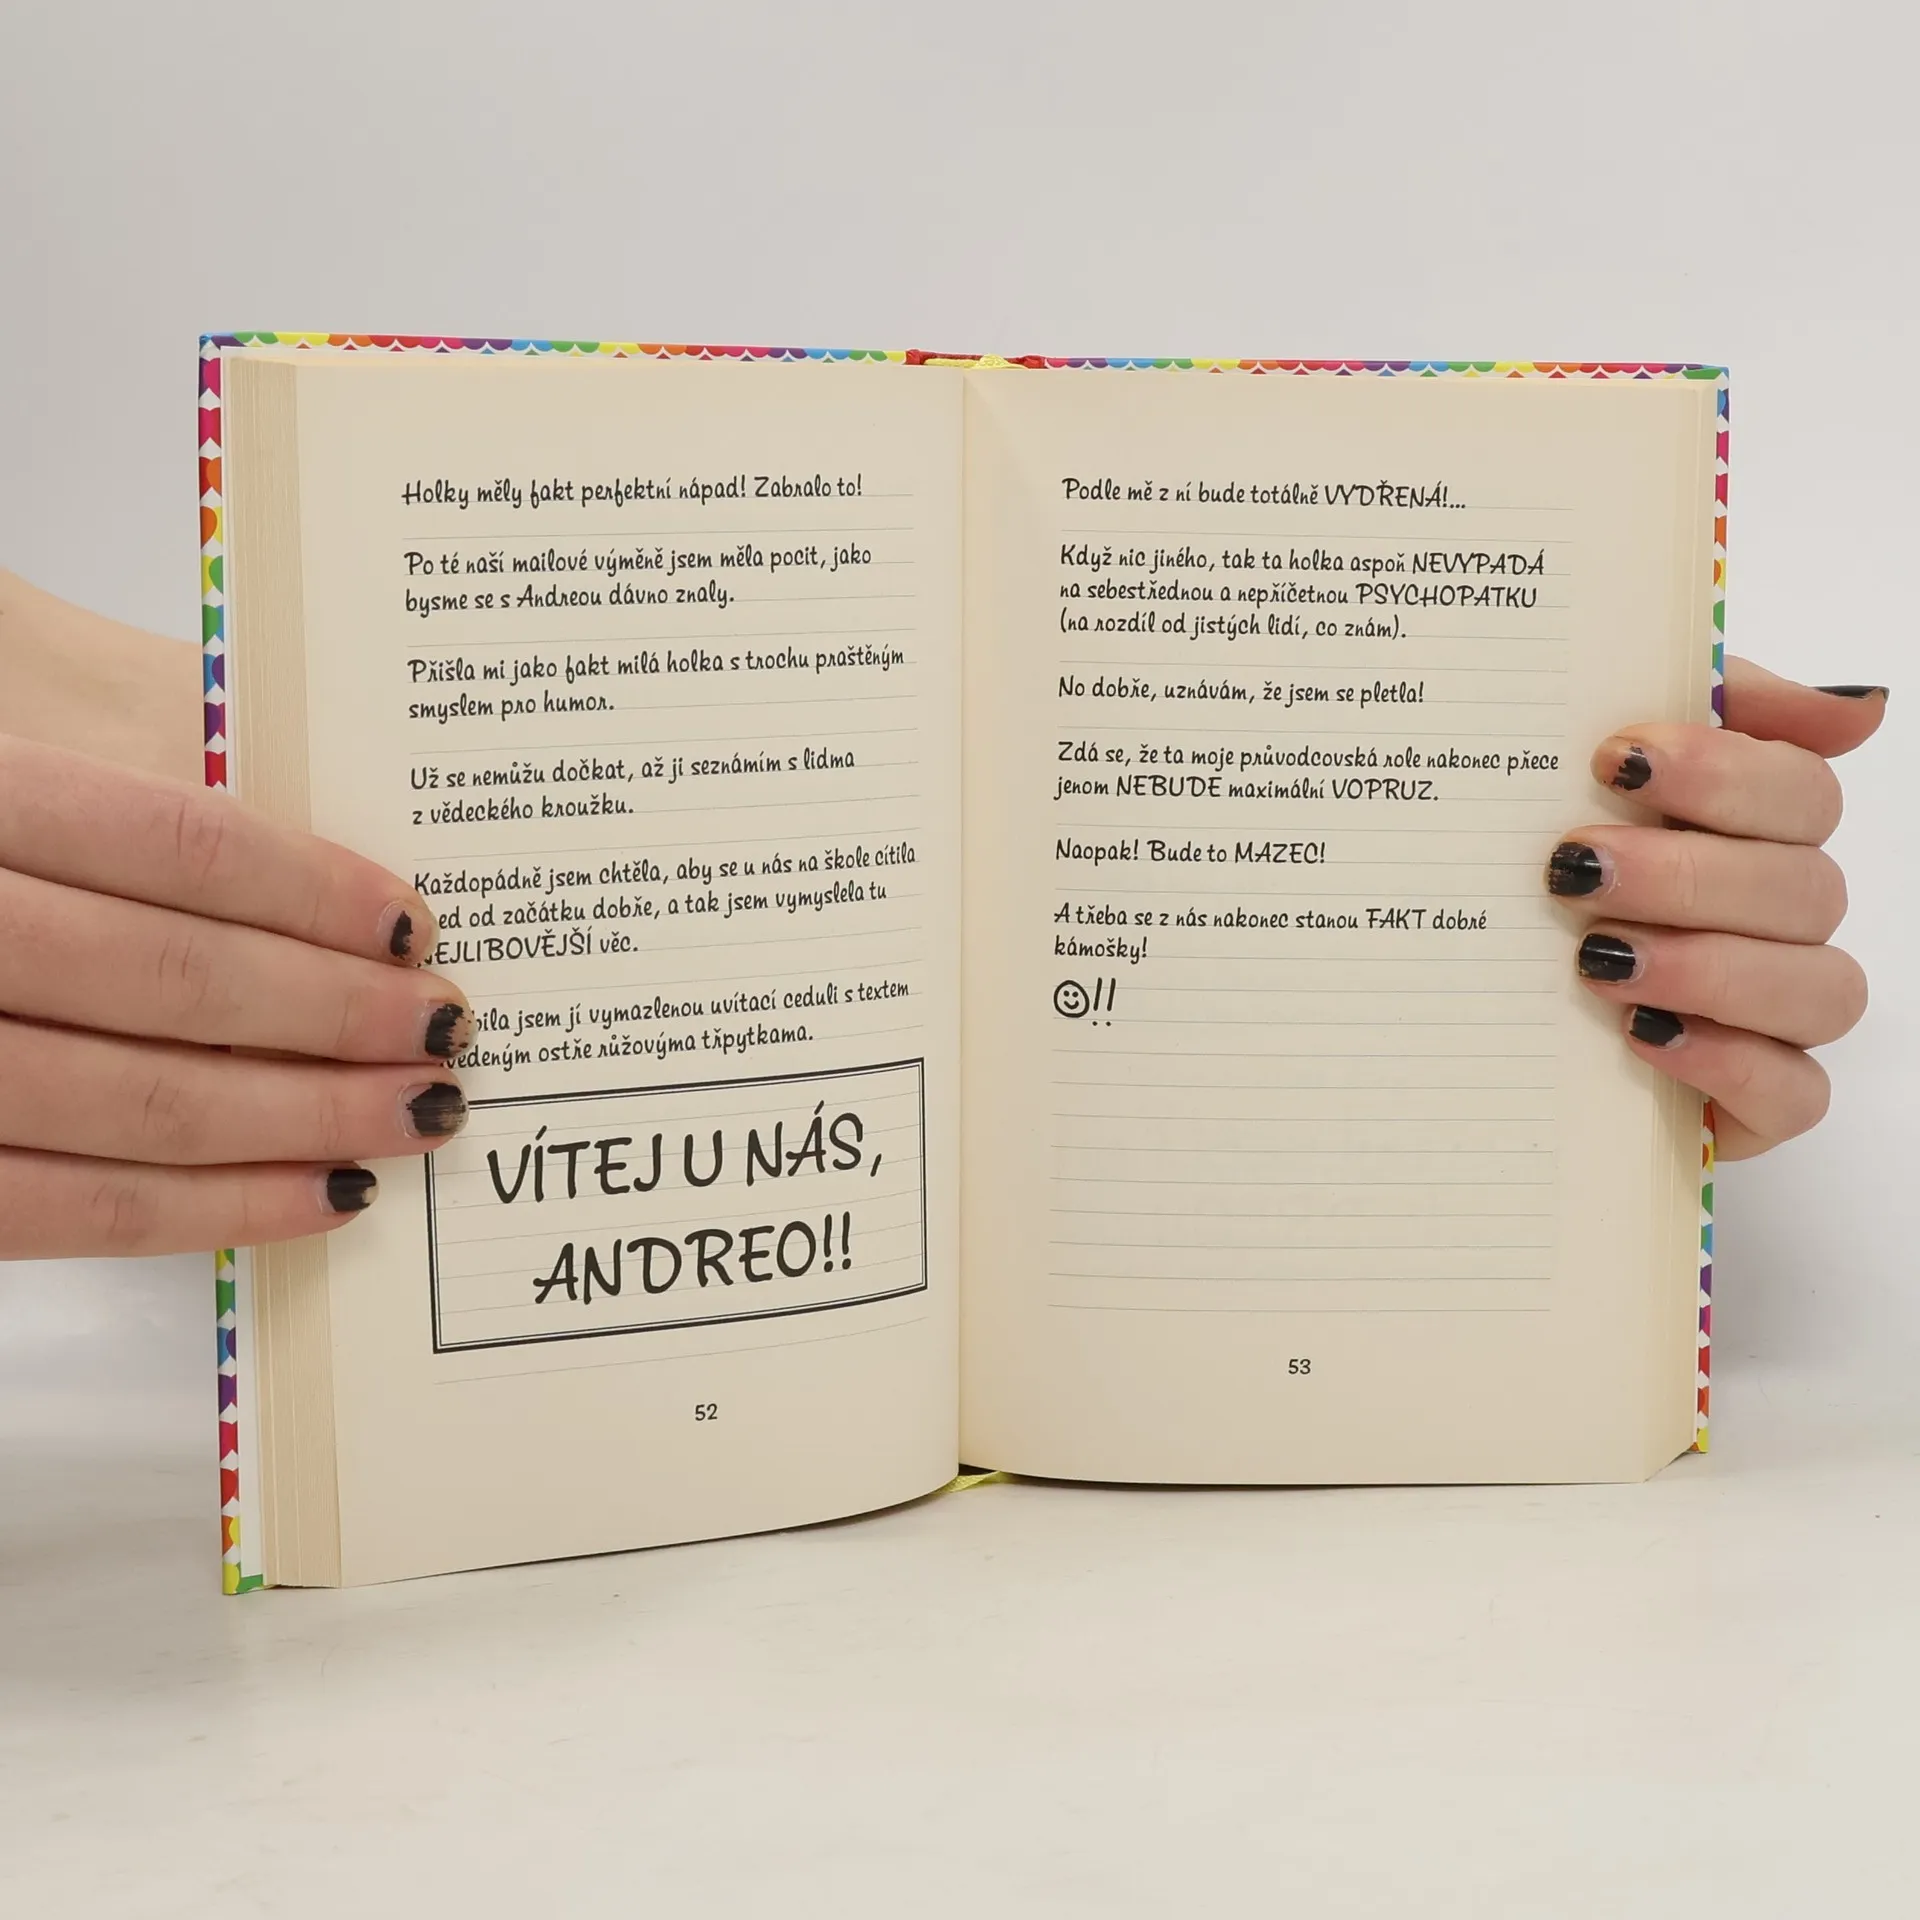 Holky měly fakt perfektní nápad! Zabralo to!
Po té naší mailové výměně jsem měla pocit, jako
bysme se s Andreou dávno znaly.
Přišla mi jako fakt milá holka s trochu praštěným
smyslem pro humor.
Už se nemůžu dočkat, až ji seznámím s lidma
z vědeckého kroužku.
Každopádně jsem chtěla, aby se u nás na škole cítila
od začátku dobře, a tak jsem vymyslela tu
věc.
jsem jí vymazlenou uvítací ceduli s textem
ostře růžovýma třpytkama.
VÍTEJ U NÁS,
ANDREO!!
52
Podle mě z ní bude totálně VYDŘENÁ!...
Když nic jiného, tak ta holka aspoň NEVYPADÁ
na sebestřednou a nepříčetnou PSYCHOPATKU
(na rozdíl od jistých lidí, co znám).
No dobře, uznávám, že jsem se pletla!
Zdá se, že ta moje průvodcovská role nakonec přece
jenom NEBUDE maximální VOPRUZ.
Naopak! Bude to MAZEC!
A třeba se z nás nakonec stanou FAKT dobré
kámošky!
☺!!
53